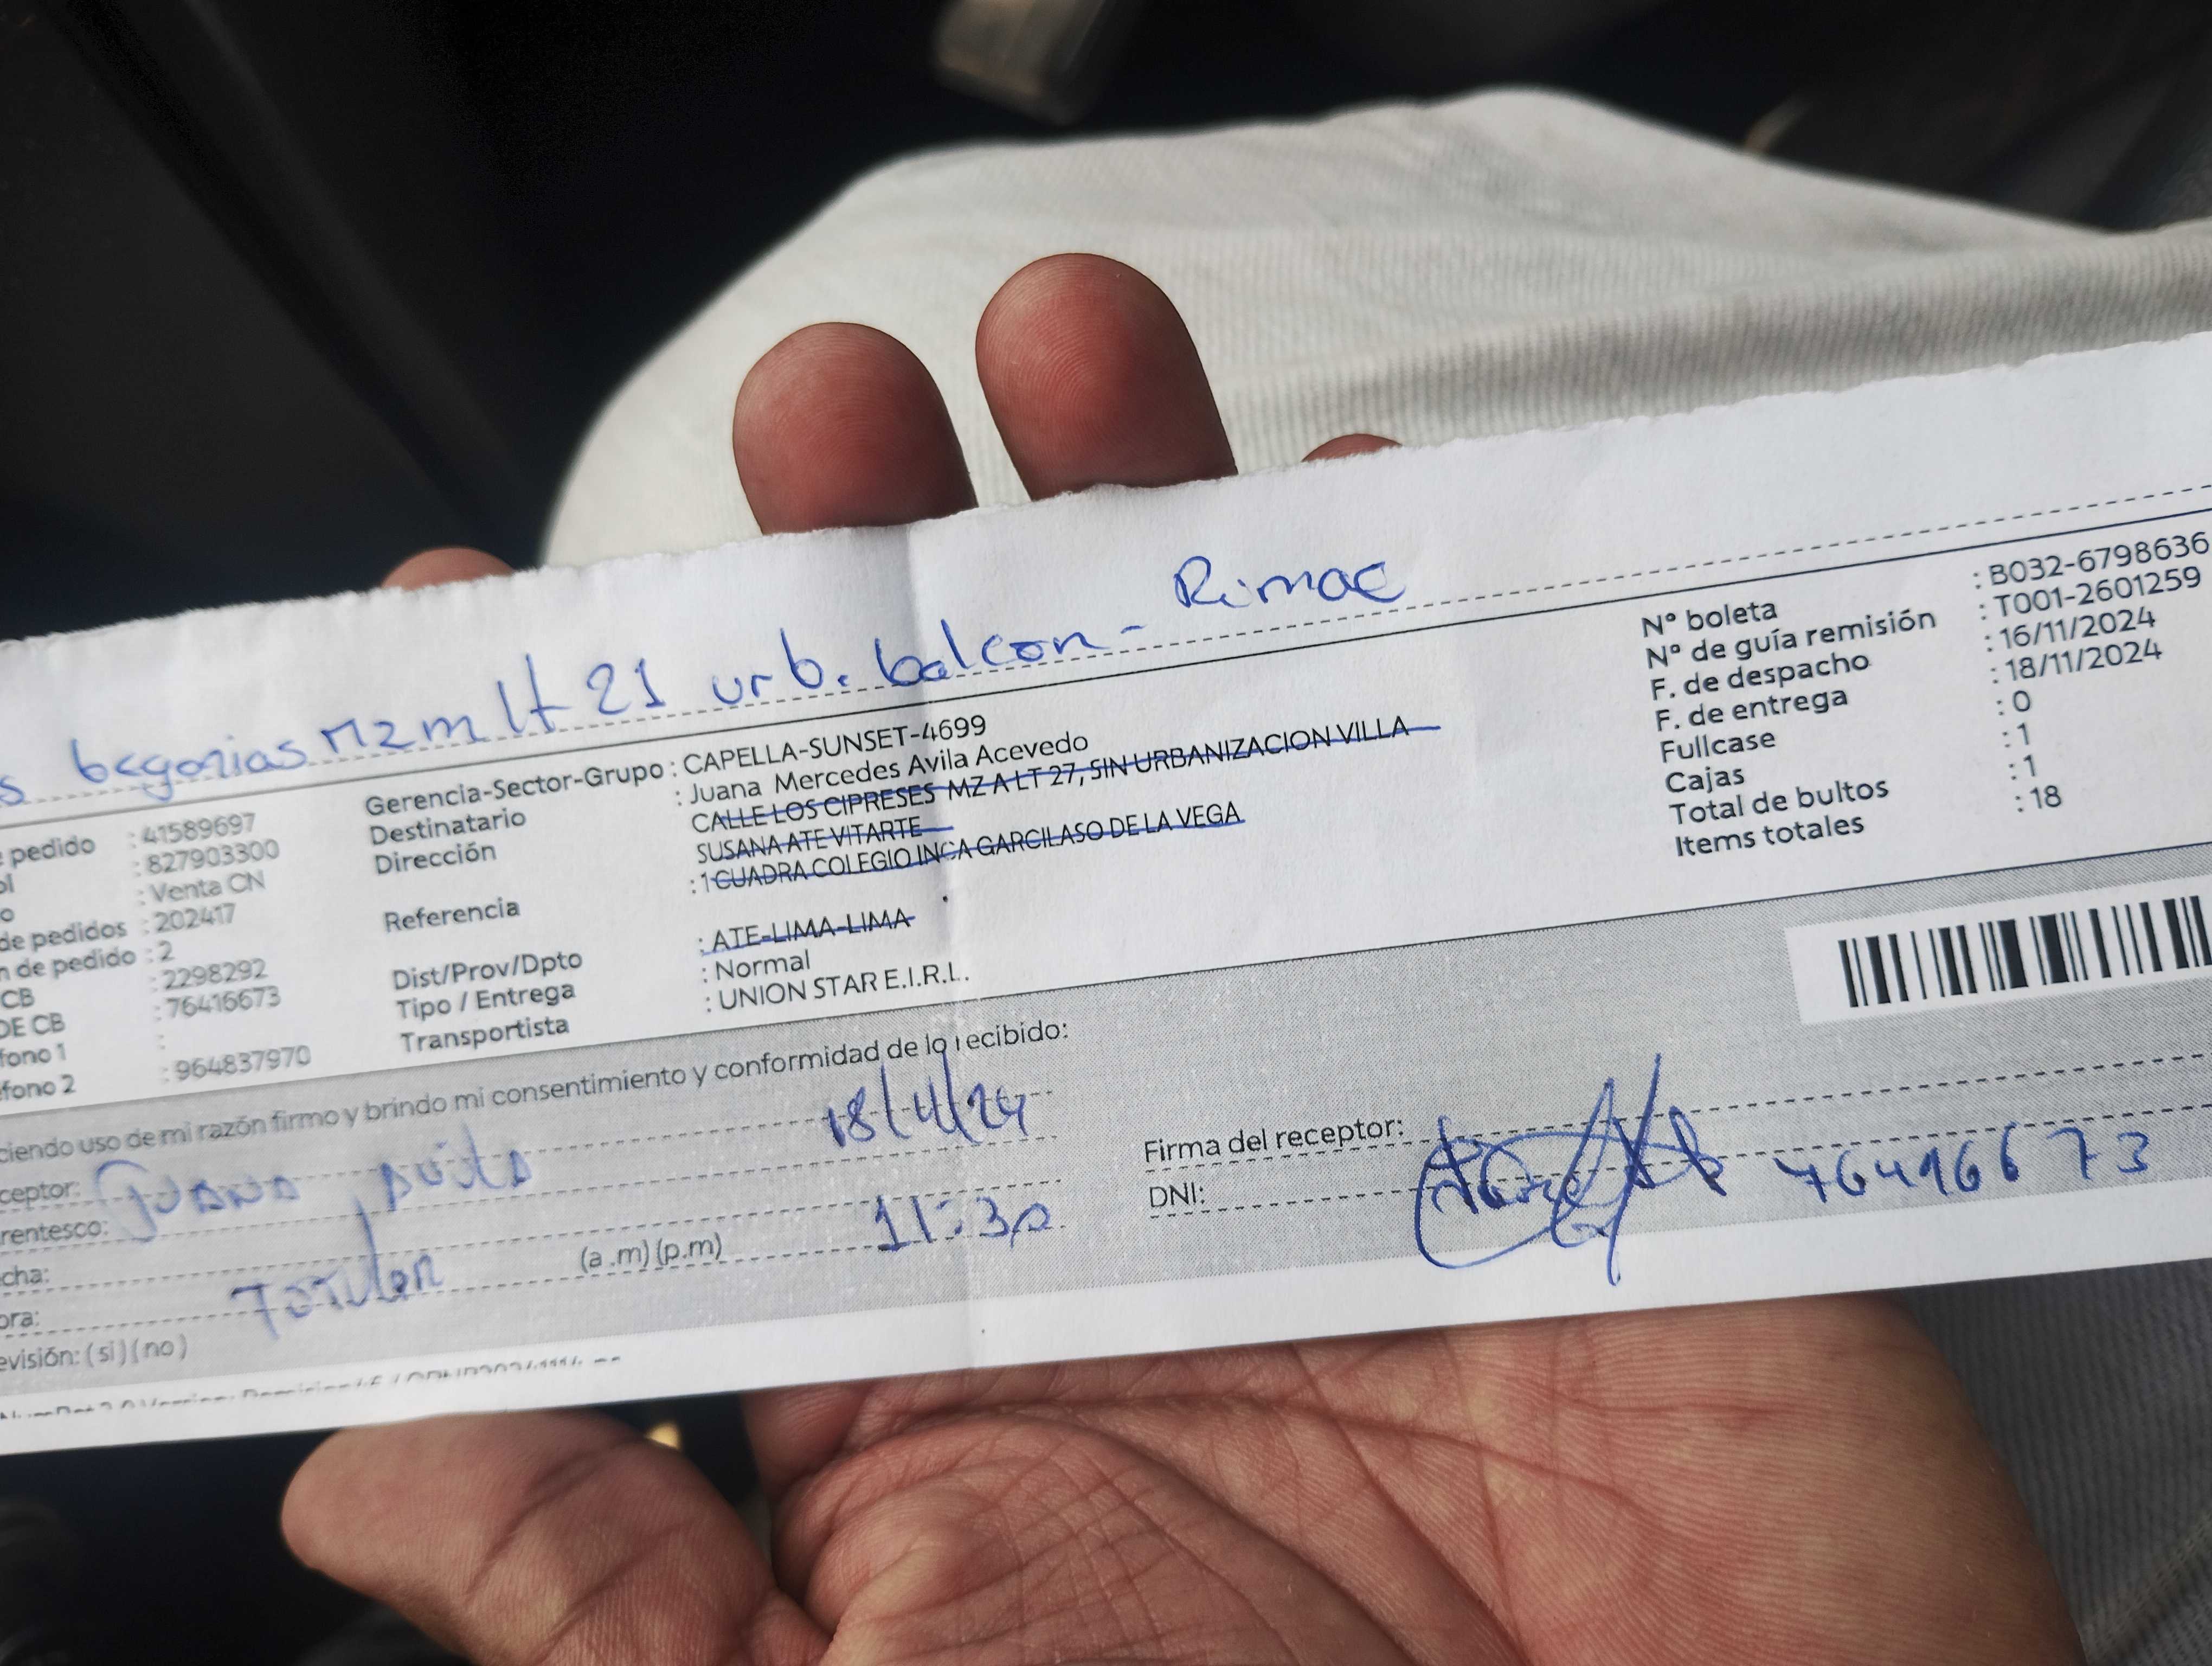 s begonias Mz m lt 21 urb. balcon - Rimac
pedido : 41589697
: 827903300
: Venta CN
de pedidos : 202417
de pedido : 2
CB : 2298292
DE CB : 76416673
fono 1 :
fono 2 : 964837970
Gerencia-Sector-Grupo : CAPELLA-SUNSET-4699
Destinatario : Juana Mercedes Avila Acevedo
Dirección CALLE LOS CIPRESES MZ A LT 27, SIN URBANIZACION VILLA
SUSANA ATE VITARTE
Referencia : 1 CUADRA COLEGIO INCA GARCILASO DE LA VEGA
Dist/Prov/Dpto : ATE-LIMA-LIMA
Tipo / Entrega : Normal
Transportista : UNION STAR E.I.R.L.
N° boleta : B032-6798636
N° de guía remisión : T001-2601259
F. de despacho : 16/11/2024
F. de entrega : 18/11/2024
Fullcase : 0
Cajas : 1
Total de bultos : 1
Items totales : 18
ciendo uso de mi razón firmo y brindo mi consentimiento y conformidad de lo recibido:
ceptor: Juana Avila 18/11/24
rentesco:
cha:
ora: Titular (a .m) (p.m) 11:30
evisión: ( si ) ( no )
Firma del receptor:
DNI: 76416673